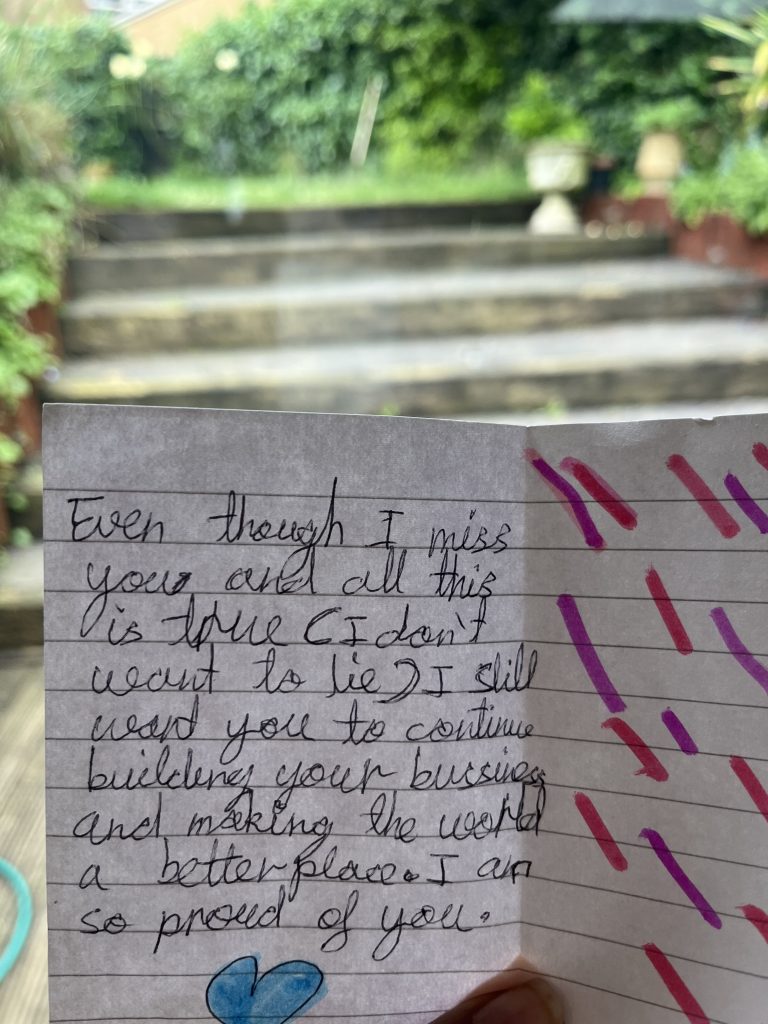 Even though I miss
you and all this
is true (I don't
want to lie) I still
want you to continue
building your bussiness
and making the world
a better place. I am
so proud of you.